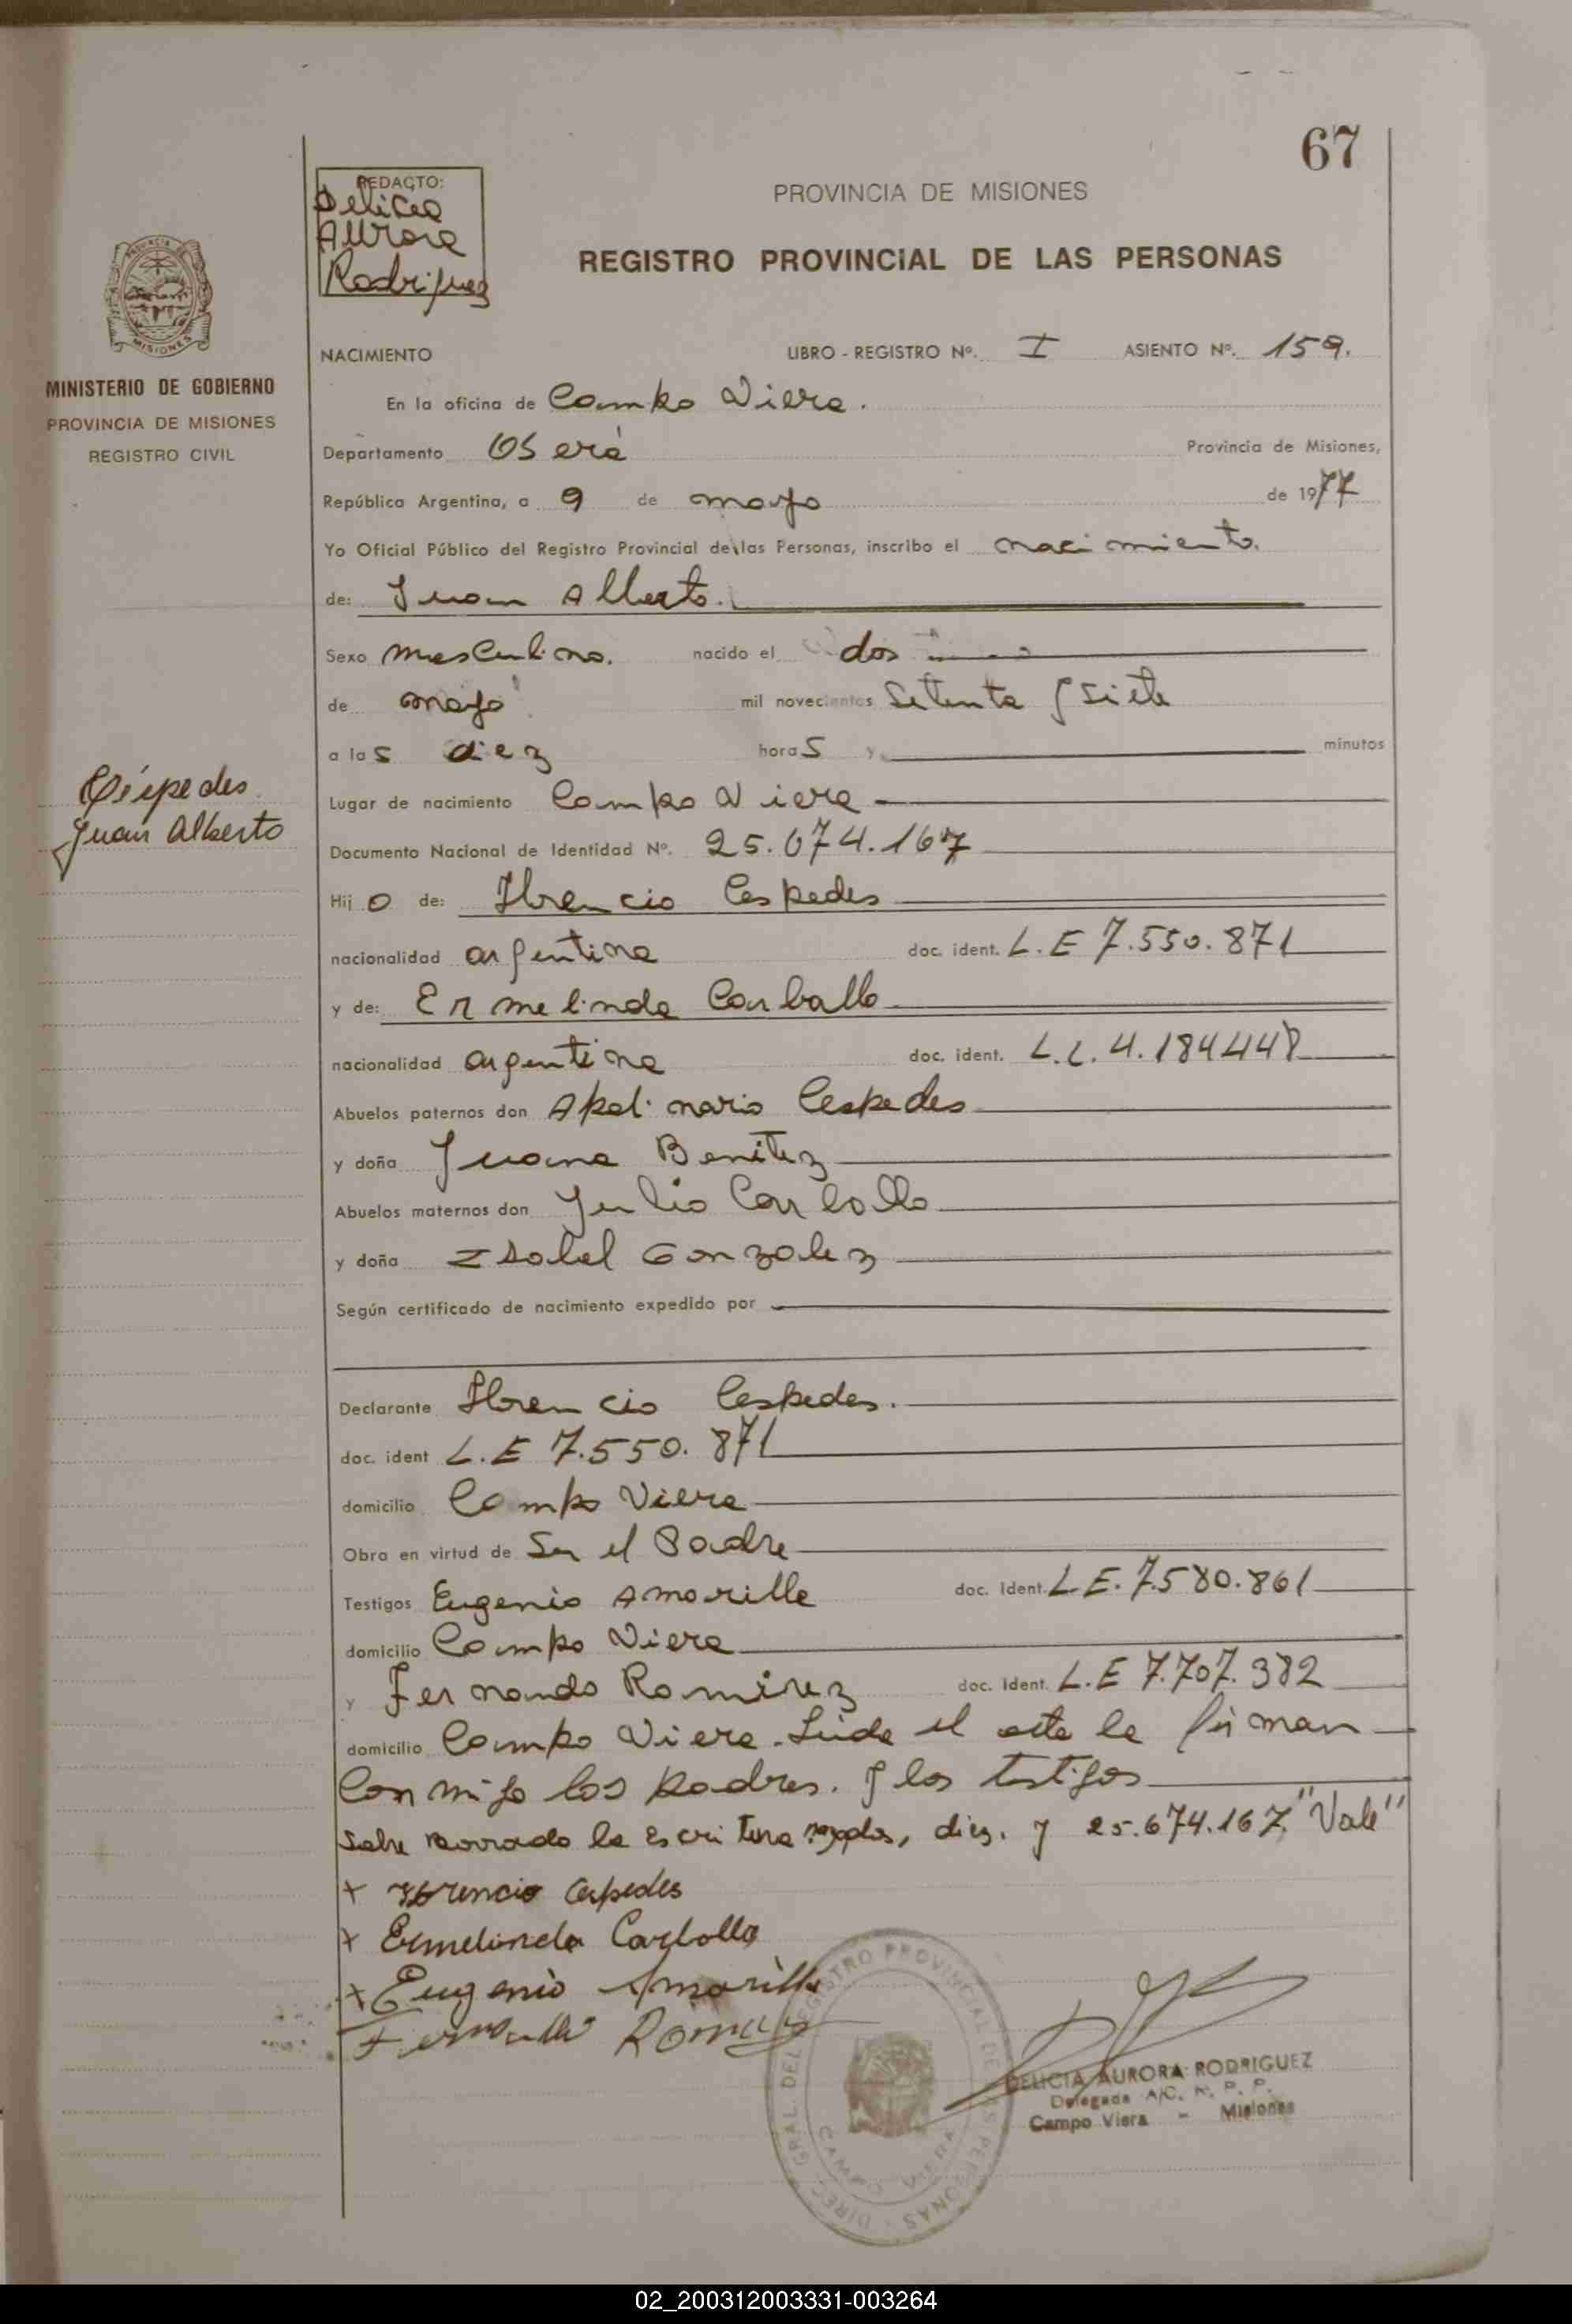 67
REDACTO:
Delicia
Aurora
Rodriguez
PROVINCIA DE MISIONES
REGISTRO PROVINCIAL DE LAS PERSONAS
PROVINCIA DE
MISIONES
MINISTERIO DE GOBIERNO
PROVINCIA DE MISIONES
REGISTRO CIVIL
NACIMIENTO LIBRO - REGISTRO Nº. I ASIENTO Nº. 159.
En la oficina de Campo Viera.
Departamento Oberá Provincia de Misiones,
República Argentina, a 9 de mayo de 1977
Yo Oficial Público del Registro Provincial de las Personas, inscribo el nacimiento.
de: Juan Alberto.
Sexo masculino. nacido el dos
de mayo mil novecientos setenta y siete
a las diez horas y minutos
Céspedes
Juan Alberto
Lugar de nacimiento Campo Viera
Documento Nacional de Identidad Nº. 25.674.167
Hijo de: Florencio Cespedes
nacionalidad argentina doc. ident. L.E 7.550.871
y de: Ermelinda Carballo
nacionalidad argentina doc. ident. L.C. 4.184448
Abuelos paternos don Apolinario Cespedes
y doña Juana Benitez
Abuelos maternos don Julio Carballo
y doña Isabel Gonzalez
Según certificado de nacimiento expedido por
Declarante Florencio Cespedes.
doc. ident L.E 7.550.871
domicilio Campo Viera
Obra en virtud de Ser el Padre
Testigos Eugenio Amarille doc. ident. L.E. 7.580.861
domicilio Campo Viera
y Fernando Ramirez doc. ident. L.E 7.707.382
domicilio Campo Viera. Leida el acta la firman
Conmigo los padres. y los testigos
Sobre borrado la Escritura dos, diez. y 25.674.167. "Vale"
+ Florencio Cespedes
+ Ermelinda Carballo
+ Eugenio Amarilla
DIREC. GRAL. DEL REGISTRO PROVINCIAL DE LAS PERSONAS
CAMPO VIERA
DELICIA AURORA RODRIGUEZ
Delegada A/C. R. P. P.
Campo Viera - Misiones
02_200312003331-003264